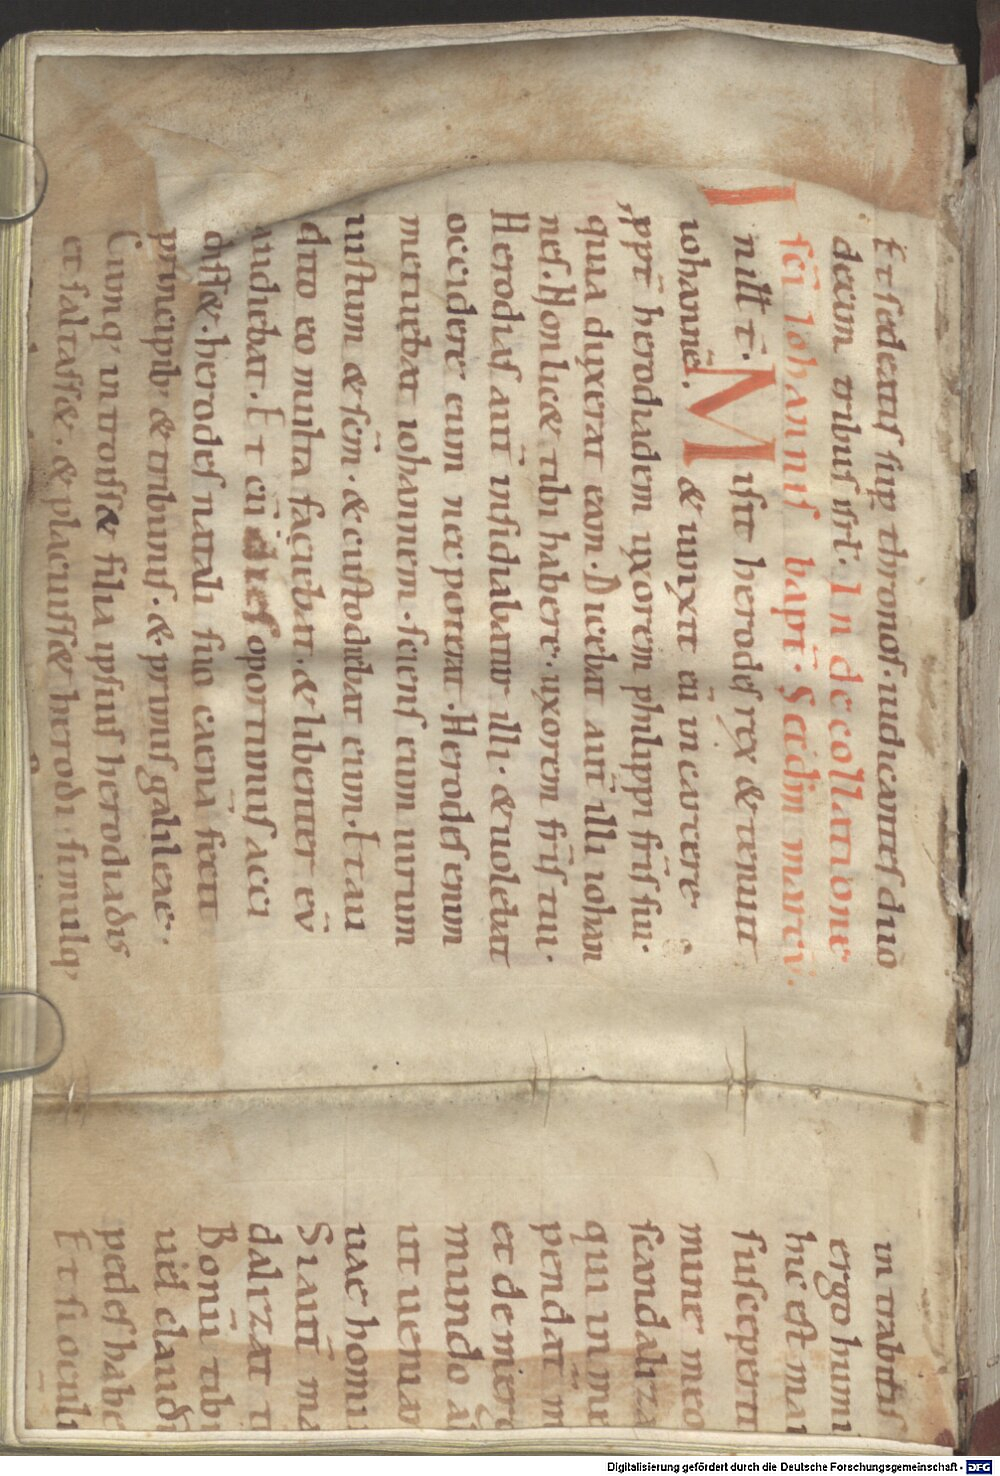 Et sedetis sup thronos. iudicantes duo
decim tribus isrl. In decollatione
sci Iohannis bapt. Scdm marcū.
In illt. Misit herodes rex & tenuit
iohannē. & uinxit eū in carcere
ppt herodiadem uxorem philippi fris sui.
quia duxerat eam. Dicebat aut illi iohan
nes. Non licæ tibi habere. uxorem fris tui.
Herodias aut insidiabatur illi. & uolebat
occidere eum nec poterat. Herodes enim
metuebat iohannem. sciens eum uirum
iustum & scm. & custodiebat eum. Et au
dito eo multa faciebat. & libenter eū
audiebat. Et cū dies oportunus acci
disset. herodes natali suo caenā fecit
principib; & tribunis. & primis galileae.
Cumq; introissæ filia ipsius herodiadis
et saltassæ. & placuissæ herodi simulq;
intrabitis
ergo humi
hic est mai
susceperit
mine meo
scandaliza
qui in me
pendat m
et de merg
mundo a
ut uenia
uae homi
Si aut ma
dalizat t
Bonū tibi
uel claud
pedes habe
Et si oculu
Digitalisierung gefördert durch die Deutsche Forschungsgemeinschaft - DFG